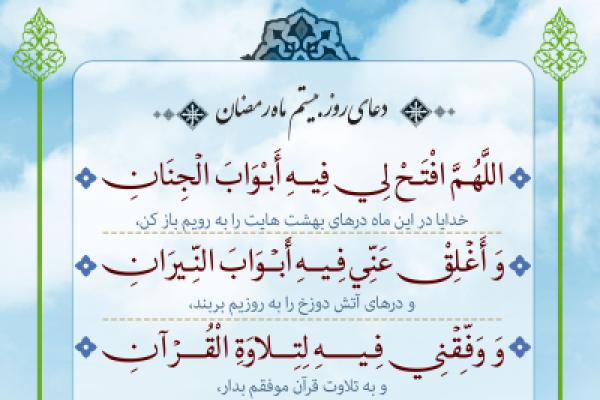 دعای روز بیستم ماه رمضان
اللَّهُمَّ افْتَحْ لِي فِيهِ أَبْوَابَ الْجِنَانِ
خدایا در این ماه درهای بهشت هایت را به رویم باز کن،
وَ أَغْلِقْ عَنِّي فِيهِ أَبْوَابَ النِّيرَانِ
و درهای آتش دوزخ را به روزیم بربند،
وَ وَفِّقْنِي فِيهِ لِتِلاوَةِ الْقُرْآنِ
و به تلاوت قرآن موفقم بدار،